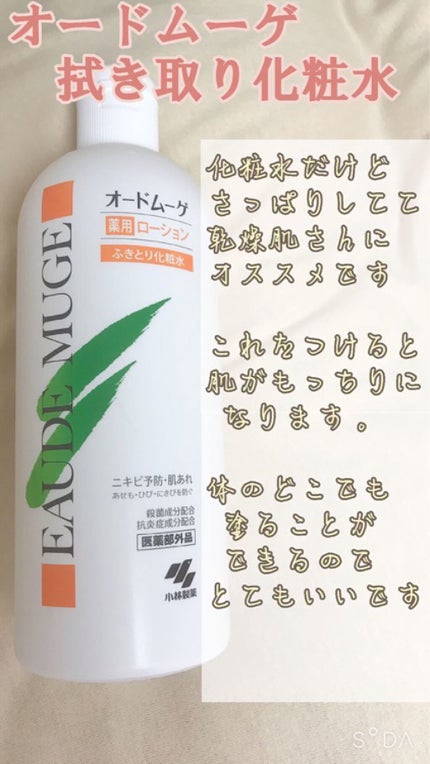 オードムーゲ
拭き取り化粧水
化粧水だけど
さっぱりしてて
乾燥肌さんに
オススメです
これをつけると
肌がもっちりに
なります。
体のどこでも
塗ることが
できるので
とてもいいです
EAUDE MUGE
オードムーゲ
薬用ローション
ふきとり化粧水
ニキビ予防・肌あれ
あせも・ひび・にきびを防ぐ
殺菌成分配合
抗炎症成分配合
医薬部外品
小林製薬
SODA